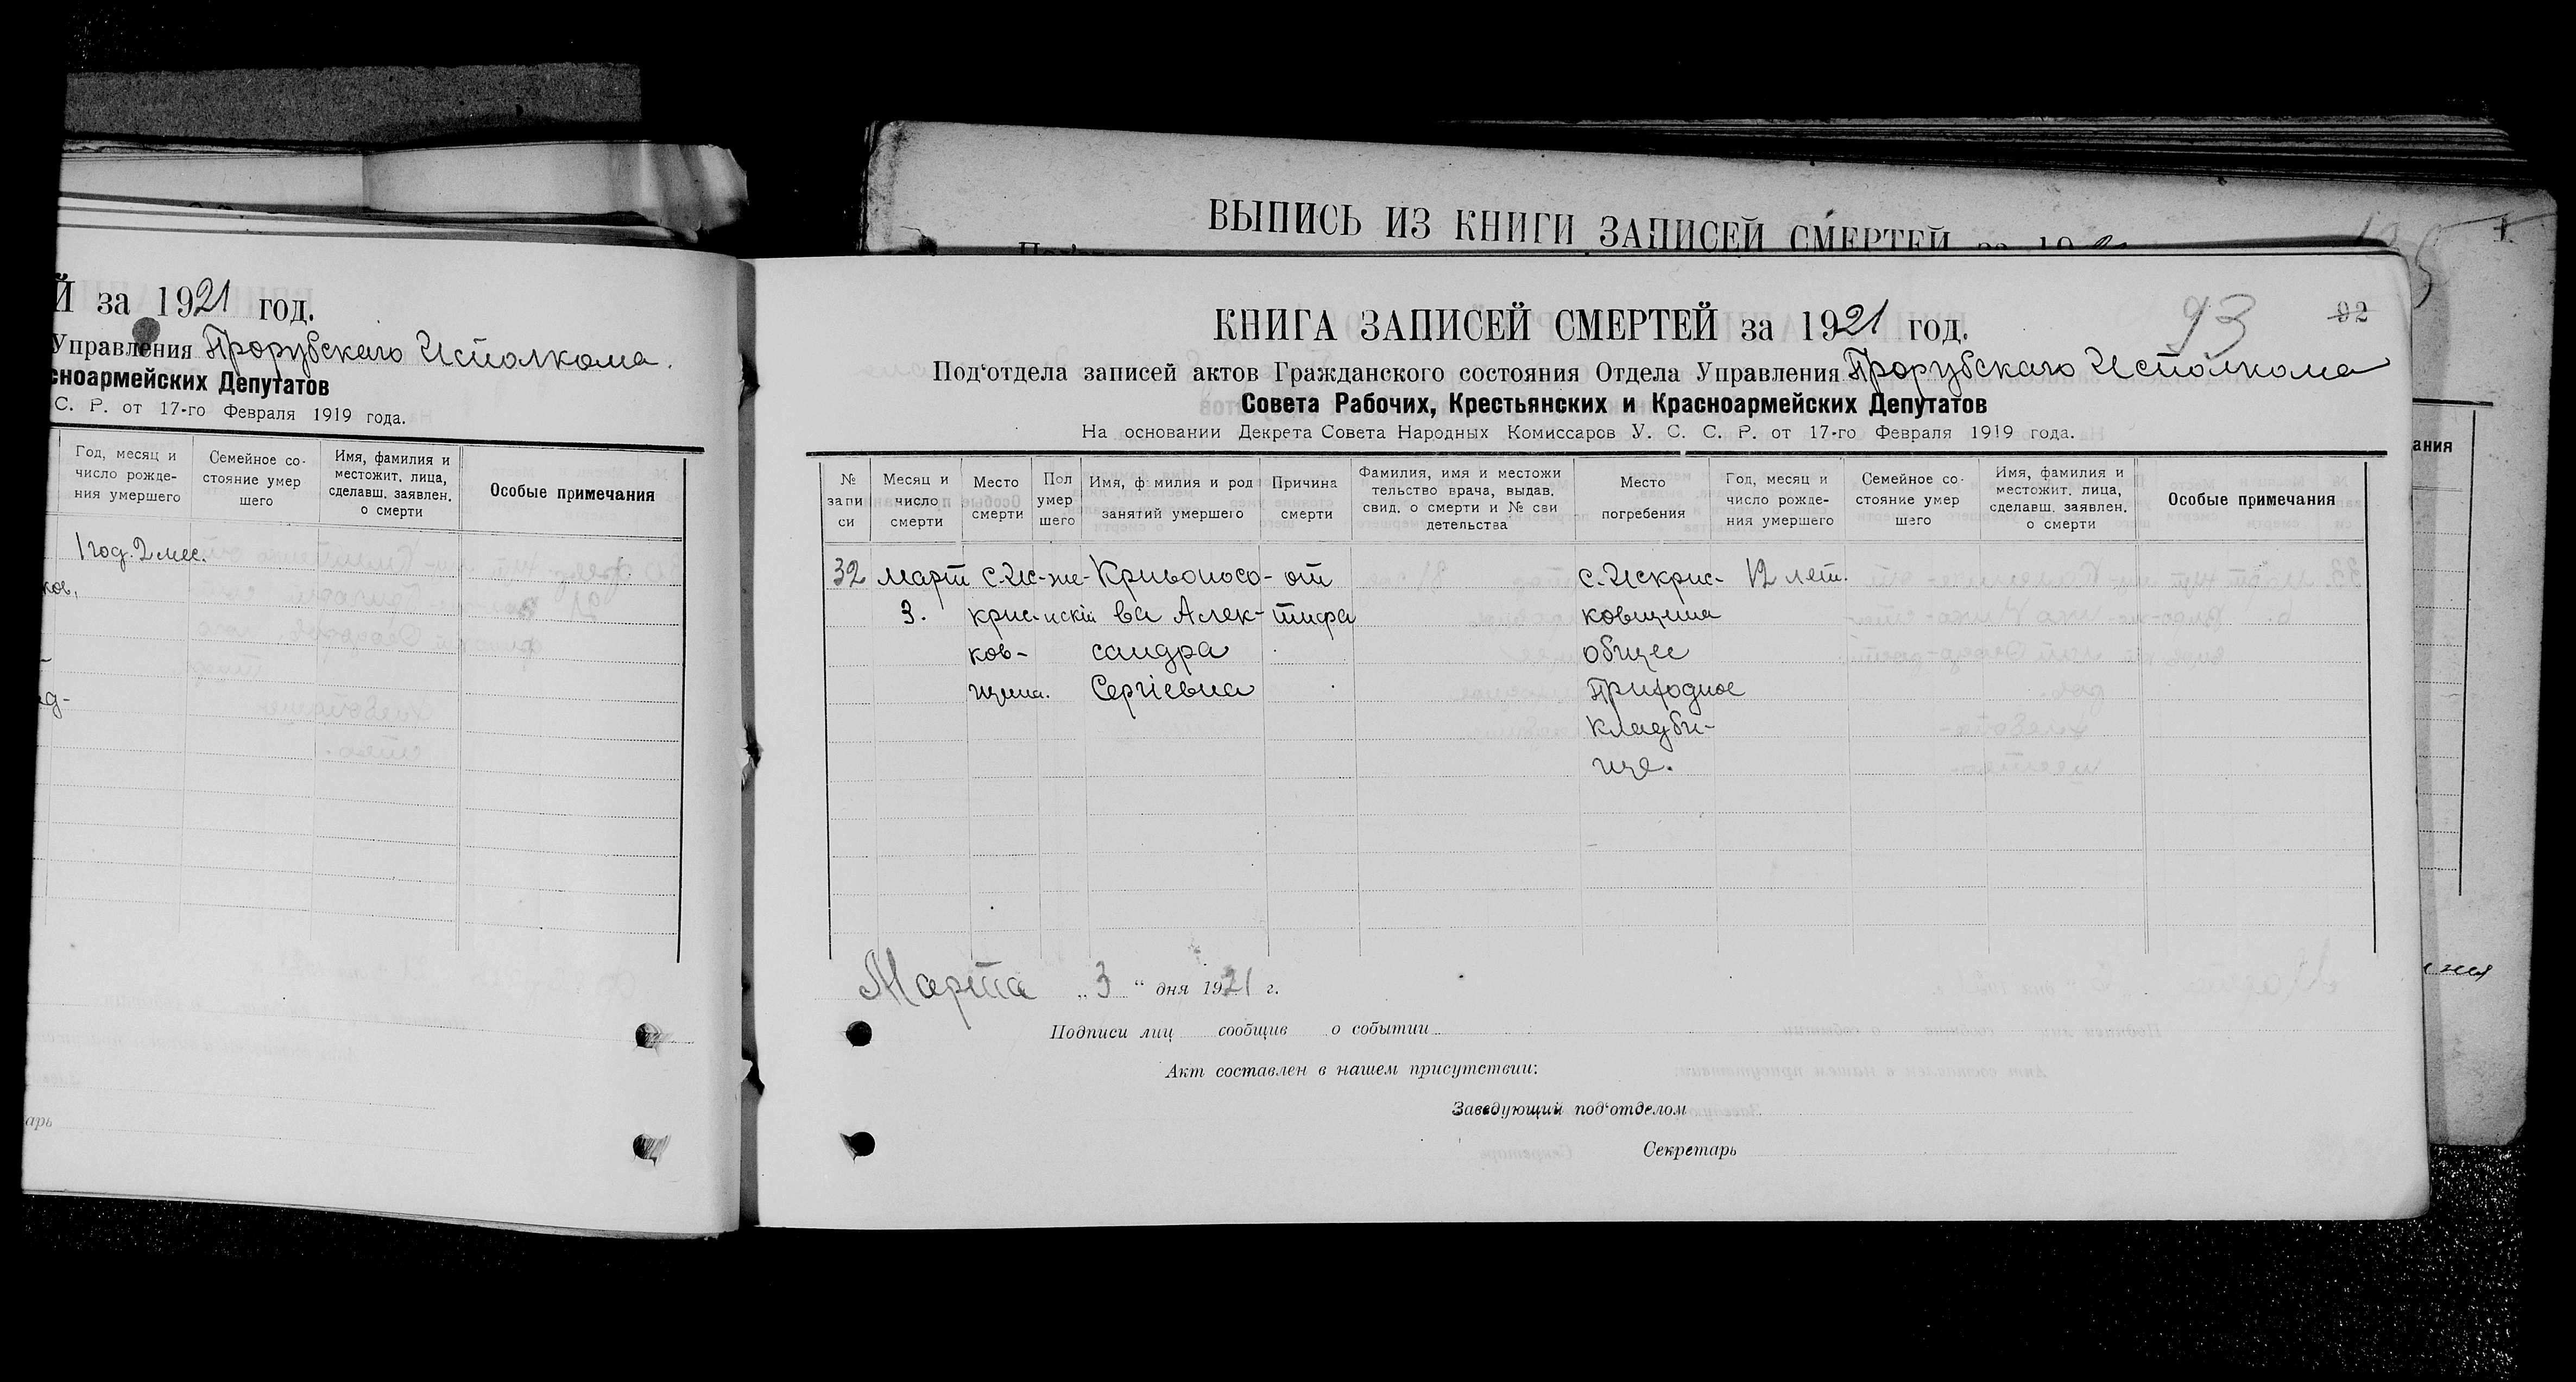 ВЫПИСЬ ИЗ КНИГИ ЗАПИСЕЙ СМЕРТЕЙ за 19
Й за 1921 год.
Управления Прорубскаго Исполкома.
сноармейских Депутатов
С. Р. от 17-го Февраля 1919 года.
Год, месяц и
число рожде-
ния умершего
Семейное со-
стояние умер
шего
Имя, фамилия и
местожит. лица,
сделавш. заявлен.
о смерти
Особые примечания
1 год. 2 мес.
ков,
арь
КНИГА ЗАПИСЕЙ СМЕРТЕЙ за 1921 год.
93
92
Под‘отдела записей актов Гражданского состояния Отдела Управления Прорубскаго Исполкома
Совета Рабочих, Крестьянских и Красноармейских Депутатов
На основании Декрета Совета Народных Комиссаров У. С. С. Р. от 17-го Февраля 1919 года.
№
запи
си
Месяц и
число
смерти
Место
смерти
Пол
умер
шего
Имя, фамилия и род
занятий умершего
Причина
смерти
Фамилия, имя и местожи
тельство врача, выдав.
свид. о смерти и № сви
детельства
Место
погребения
Год, месяц и
число рожде-
ния умершего
Семейное со-
стояние умер
шего
Имя, фамилия и
местожит. лица,
сделавш. заявлен.
о смерти
Особые примечания
ания
32 март с. Ис- же- Кривоносо- от с. Искрис- 12 лет.
3. крис- нскій ва Алек- тифа ковщина
ков- сандра общее
щина. Сергіевна Приходное
кладби-
ще.
Марта „ 3 “ дня 1921 г.
Подписи лиц сообщив о событии
Акт составлен в нашем присутствии:
Заведующий под‘отделом
Секретарь